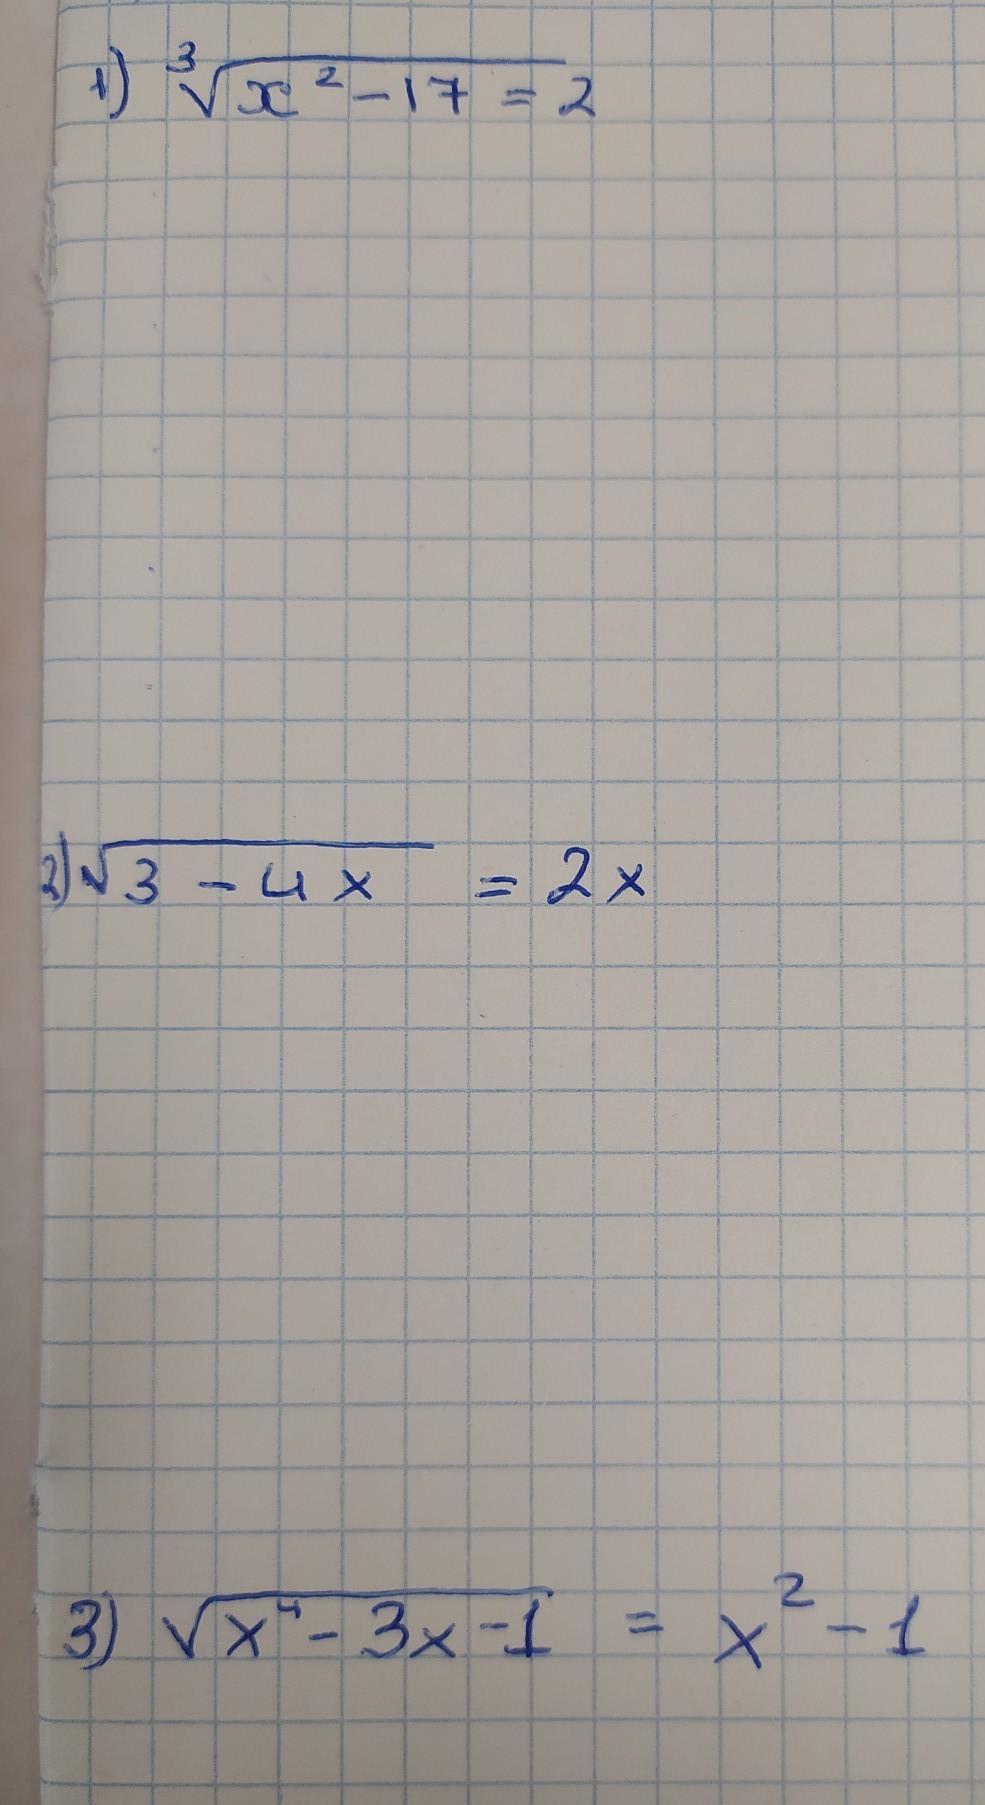 1) ∛(x² - 17) = 2
2) √(3 - 4x) = 2x
3) √(x⁴ - 3x - 1) = x² - 1